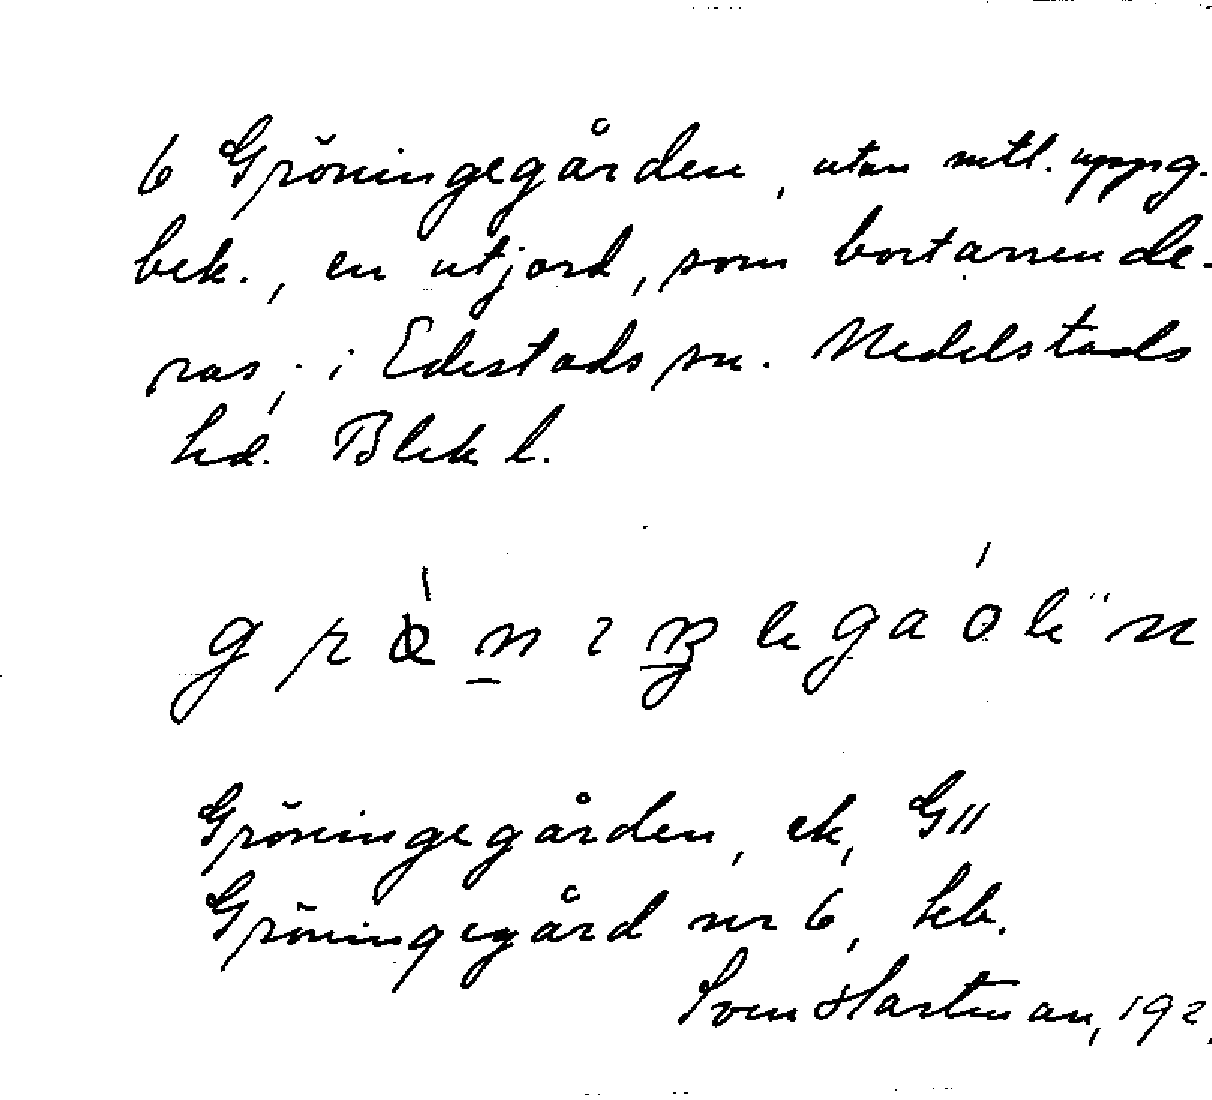 6 Gröningegården, utan mtl. uppg.
bek., en utjord, som bortarrende-
ras, i Edestads sn. Medelstads
hd. Blek l.
Gröningegården, ek, G11
Gröningegård nr 6, kb.
Sven Hartman, 192